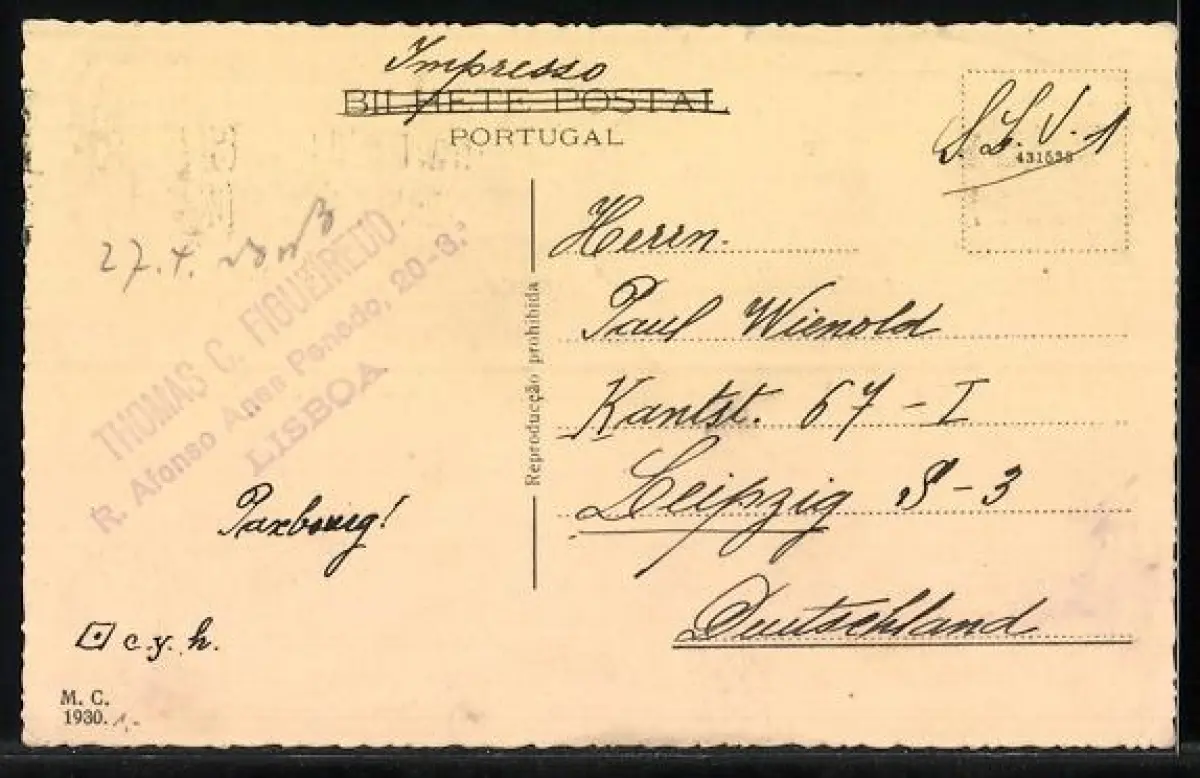 Impresso
BILHETE POSTAL
PORTUGAL
431538
27.4.
THOMAS C. FIGUEIREDO
R. Afonso Anes Penedo, 20-3.º
LISBOA
Reproducção prohibida
Herrn.
Paul Wienold
Kantst. 67 - I
Leipzig S - 3
Deutschland
c. y. h.
M. C.
1930.